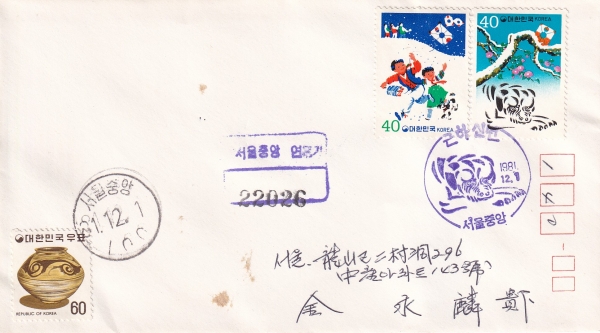 40
대한민국 KOREA
40
대한민국 KOREA
근하신년
1981.
12. 1
서울중앙
서울중앙
12. 1
서울중앙
22026
대한민국우표
REPUBLIC OF KOREA
60
서울. 龍山区 二村洞 296
中産아파트 (43號)
金 永 麟 貴下